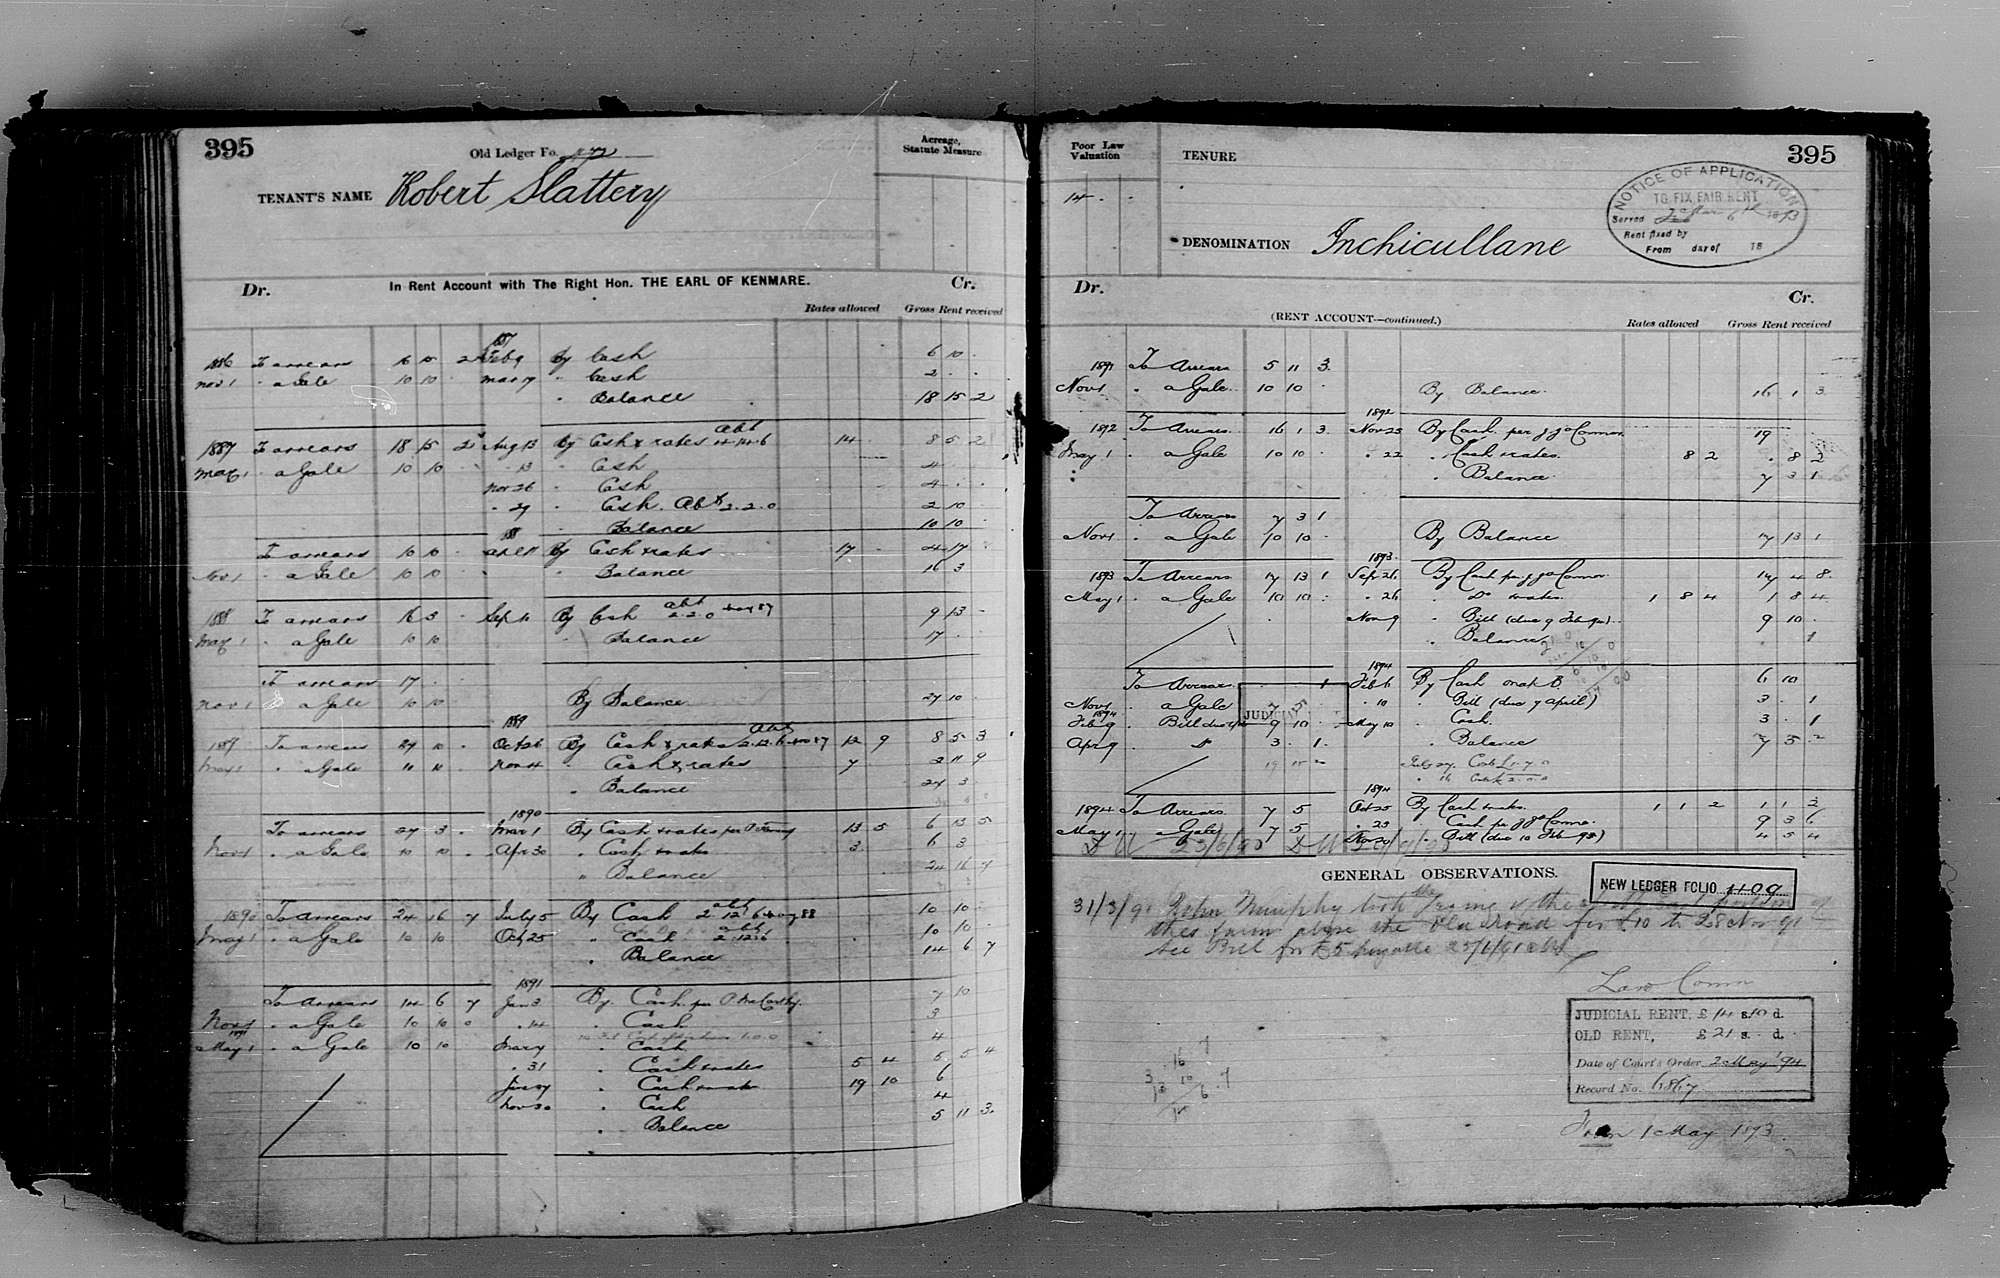 395
Old Ledger Fo.
Acreage,
Statute Measure
TENANT'S NAME Robert Slattery
Dr. In Rent Account with The Right Hon. THE EARL OF KENMARE. Cr.
Rates allowed Gross Rent received
1886 To arrears 16 15 2 1887 Feb 9 By Cash 6 10 .
Nov 1 " a Gale 10 10 . Mar 17 " Cash 2 . .
" Balance 18 15 2
1887 To arrears 18 15 2 Aug 13 By Cash & rates abt 4.14.6 14 8 5 2
May 1 " a Gale 10 10 " 13 " Cash 4 . .
Nov 26 " Cash 4 . .
" 29 " Cash. Abt 2.2.0 2 10
" Balance 10 10
To arrears 10 10 . By Cash & rates 17 4 17
Nov 1 " a Gale 10 10 " Balance 16 3
1888 To arrears 16 3 . Sep By Cash abt 2.2.0 9 13 .
May 1 " a Gale 10 10 " Balance 17 .
To arrears 17 .
Nov 1 " a Gale 10 10 By Balance 27 10 .
1889
1889 To arrears 27 10 . Oct 26 By Cash & rates abt 2.12.6 12 9 8 5 3
May 1 " a Gale 10 10 . Nov 4 " Cash & rates 7 2 11 9
" Balance 27 3
1890
To arrears 27 3 . Mar 1 By Cash & rates per 13 5 6 13 5
Nov 1 " a Gale 10 10 . Apr 30 " Cash & rates 3 6 3
" Balance 24 16 7
1890 To arrears 24 16 7 July 5 By Cash abt 2 12 6 10 10 .
May 1 " a Gale 10 10 Oct 25 " Cash abt 2.12.6 10 10 .
" Balance 14 6 7
1891
To Arrears 14 6 7 Jan 3 By Cash per P McCarthy 7 10
Nov 1 " a Gale 10 10 0 " 14 " Cash 3
1891
May 1 " a Gale 10 10 " Cash 4
" 31 " Cash & rates 5 4 5 5 4
" Cash & rates 19 10 6
Nov 30 " Cash 4
" Balance 5 11 3
Poor Law
Valuation
14 . .
TENURE
395
NOTICE OF APPLICATION
TO FIX FAIR RENT
Served 6th 1893
Rent fixed by
From day of 18
DENOMINATION Inchicullane
Dr. Cr.
(RENT ACCOUNT—continued.)
Rates allowed Gross Rent received
1891 To Arrears 5 11 3.
Nov 1 " a Gale 10 10 . By Balance 16 1 3
1892
1892 To Arrears 16 1 3. Nov 23 By Cash per J J O'Connor 19
May 1 " a Gale 10 10 . " 22 " Cash & rates. 8 2 . 8 2
" Balance 7 3 1
To Arrears 7 3 1
Nov 1 " a Gale 10 10 . By Balance 17 13 1
1893
1893 To Arrears 17 13 1 Sep 26 By Cash per J J O'Connor 17 4 8
May 1 " a Gale 10 10 . " 26 " Do rates. 1 8 4 1 8 4
Nov 9 " Bill (due 9 Feb 94) 9 10 .
" Balance 1
1894
To Arrears . . 1 Feb 6 By Cash 6 10
Nov 1 " a Gale 7 5 " 10 " Bill (due 7 April) 3 . 1
1894
Feb 9 " Bill due 9 10 . May 10 " Cash 3 . 1
Apr 9 " Dr 3 . 1 " Balance 7 5 2
JUDICIAL
1894
1894 To Arrears 7 5 Oct 25 By Cash & rates. 1 1 2 1 1 2
May 1 " a Gale 7 5 " 23 " Cash per J J O'Connor 9 3 6
Nov 20 " Bill (due 10 Feb 95) 4 5 4
GENERAL OBSERVATIONS.
NEW LEDGER FOLIO 1109
31/3/91 John Murphy took the grazing of the
this farm above the old road for £10 to 28 Nov 91
see Bill for £5 payable
Law Comn
JUDICIAL RENT, £14 s.10 d.
OLD RENT, £21 s. d.
Date of Court's Order 2 May '94
Record No. 6867
From 1 May 1893